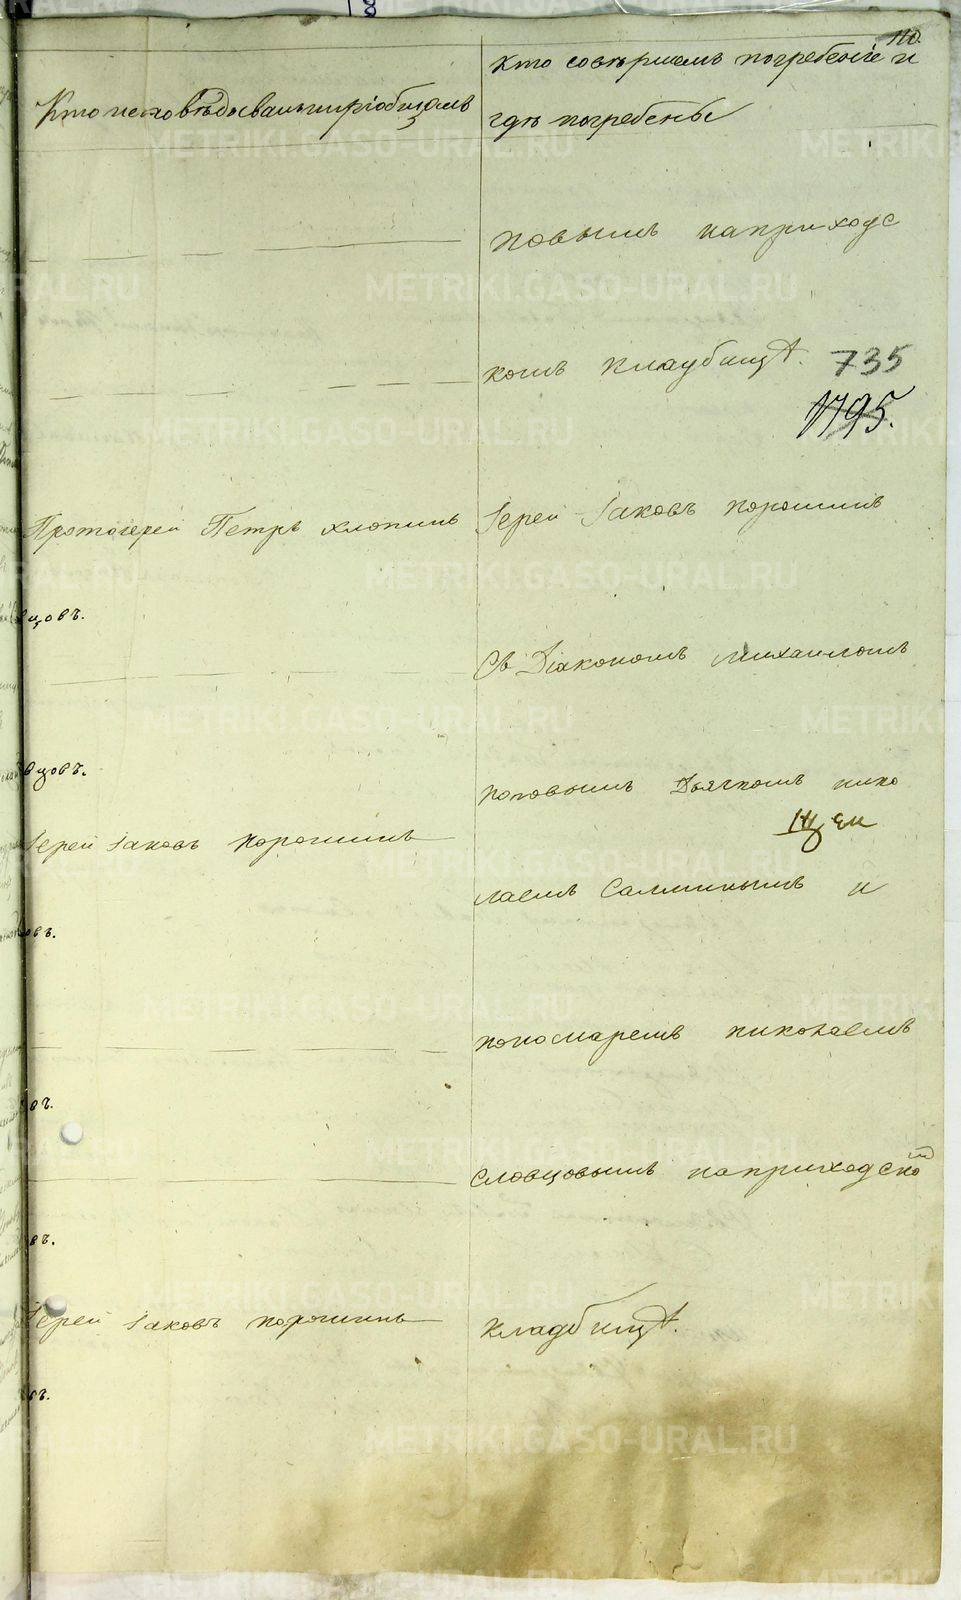 110.
Кто исповѣдывалъ и пріобщалъ
Кто совершалъ погребеніе и
гдѣ погребены
повымъ на приходс
комъ кладбищѣ. 735
1795.
Протоіерей Петръ Хлопинъ
Іерей Іаковъ Порошинъ
вцовъ.
Съ Діакономъ Михаиломъ
вцовъ.
Поповымъ Дьячкомъ Нико
Іерей Іаковъ Порошинъ
лаемъ и
овъ.
пономаремъ Николаемъ
въ.
Словцовымъ на приходском
въ.
Іерей Іаковъ Порошинъ
кладбищѣ.
въ.
METRIKI.GASO-URAL.RU